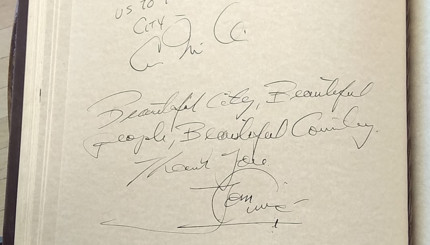 us to
City -
Beautiful City, Beautiful
people, Beautiful Country.
Thank You
Tom